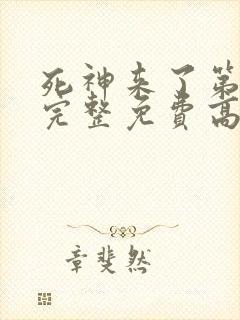 死神来了第
完整免费高
章斐然